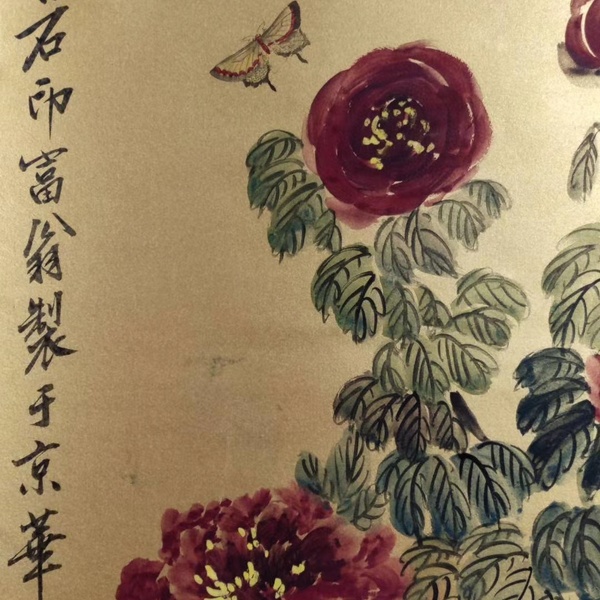 石印富翁製于京華